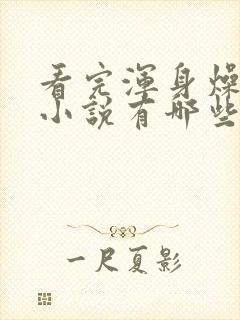 看完渾身燥
小說有哪些
一尺夏影